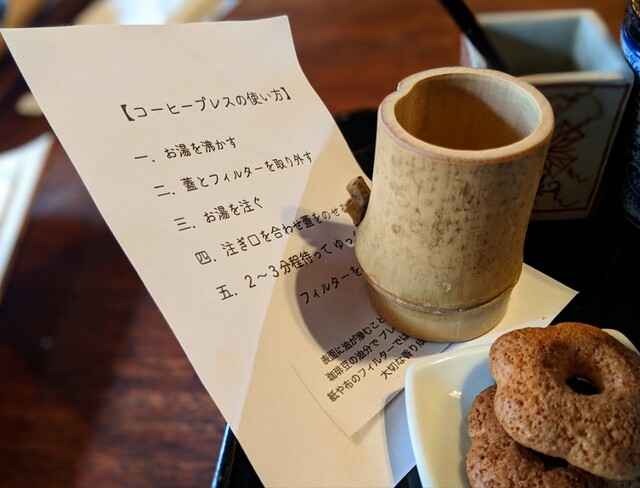 【コーヒープレスの使い方】
一、お湯を沸かす
二、蓋とフィルターを取り外す
三、お湯を注ぐ
四、注ぎ口を合わせ蓋をのせ
五、2〜3分程待って ゆっ
フィルターを
表面に油が滲むこと
珈琲豆の油分で プレ
紙や布のフィルターでは
大切な香り